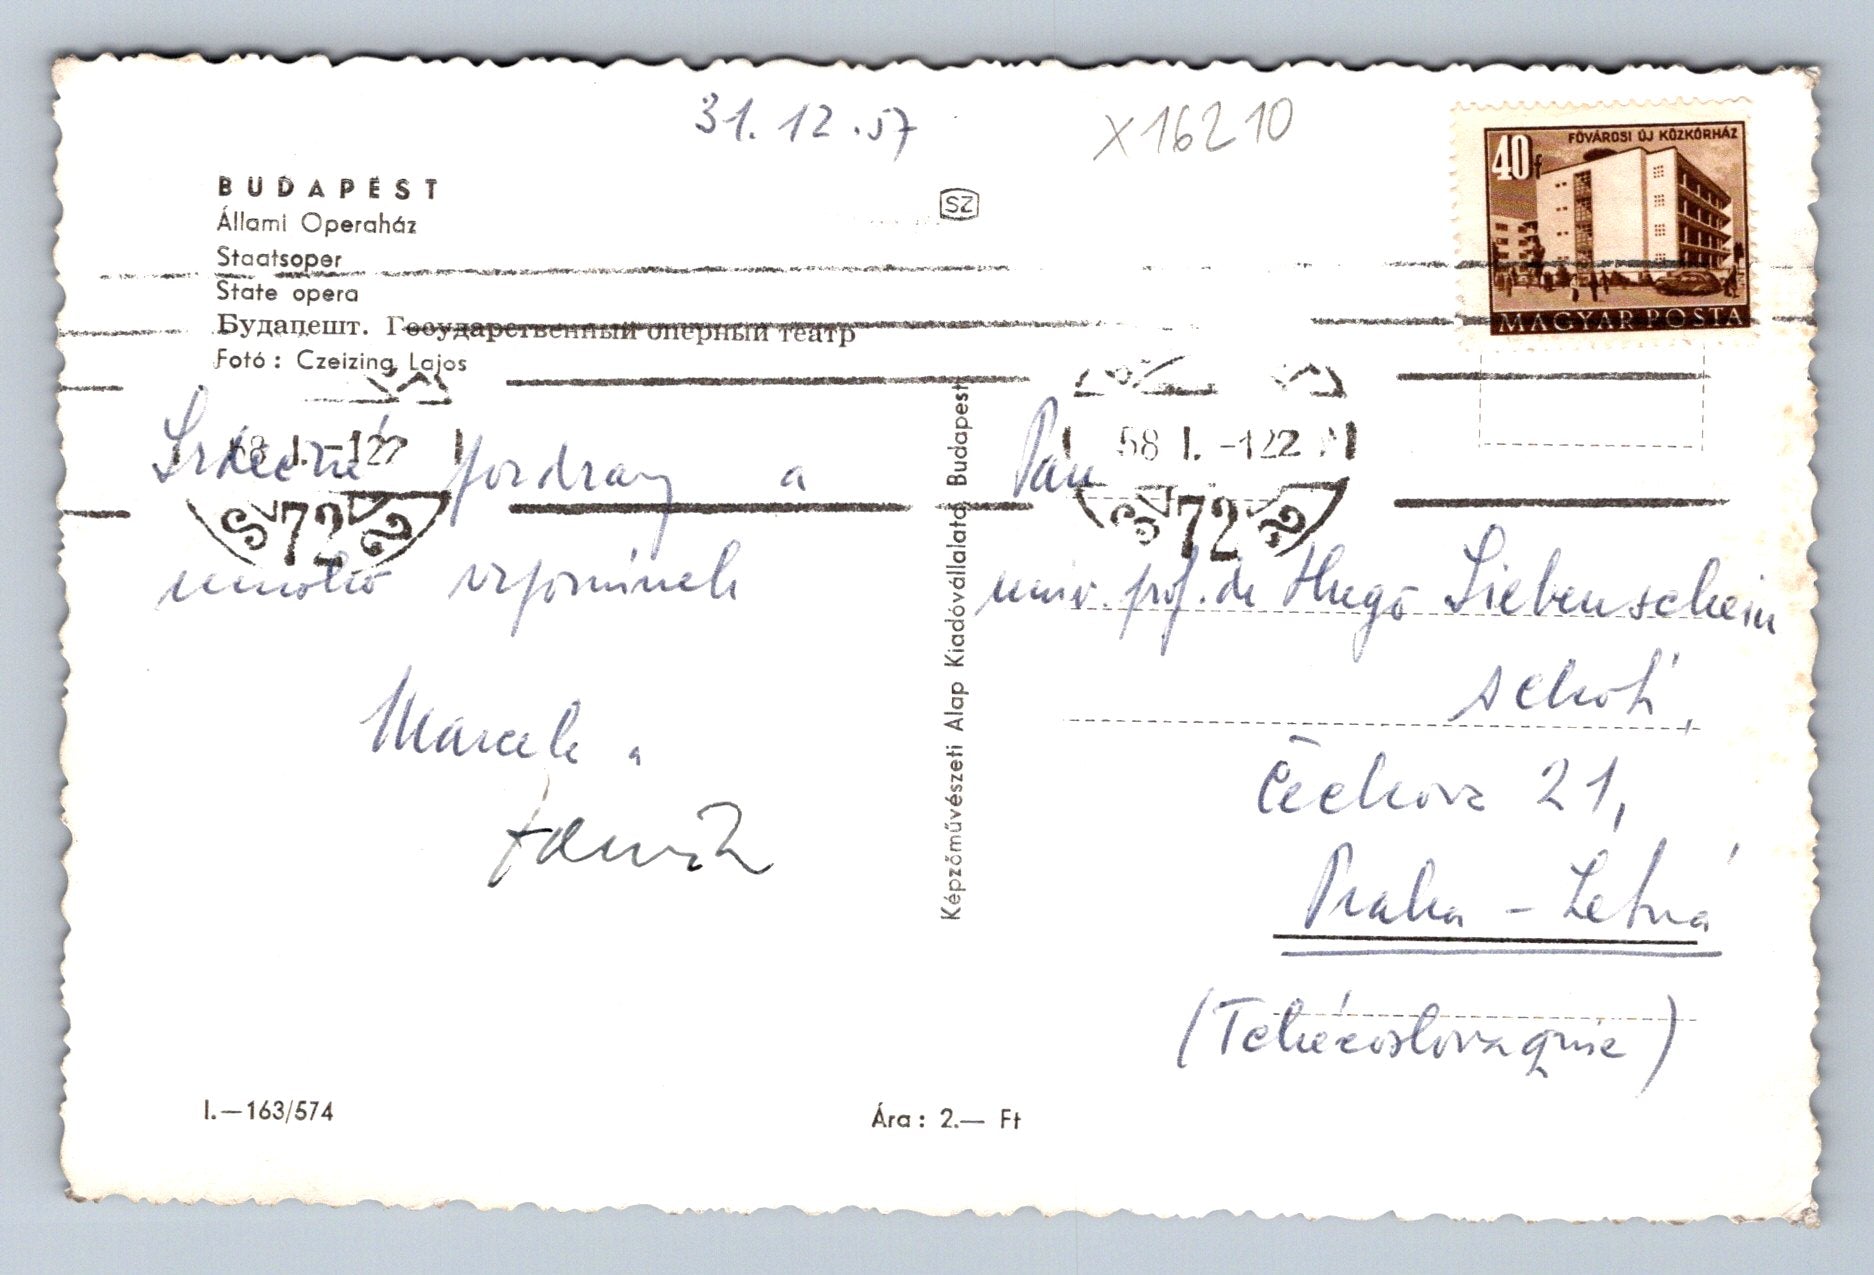 31.12.57
X16210
40f
FŐVÁROSI ÚJ KÖZKÓRHÁZ
MAGYAR POSTA
BUDAPEST
Állami Operaház
Staatsoper
State opera
Будапешт. Государственный оперный театр
Fotó: Czeizing Lajos
SZ
58 I. -1 22
72
58 I. -1 22
72
Srdečné pozdravy a
mnoho vzpomínek
Marcela
Képzőművészeti Alap Kiadóvállalata, Budapest
Pan
univ. prof. dr Hugo Siebenschein
Čechova 21,
Praha - Letná
(Tchécoslovaquie)
I.—163/574
Ára: 2.— Ft